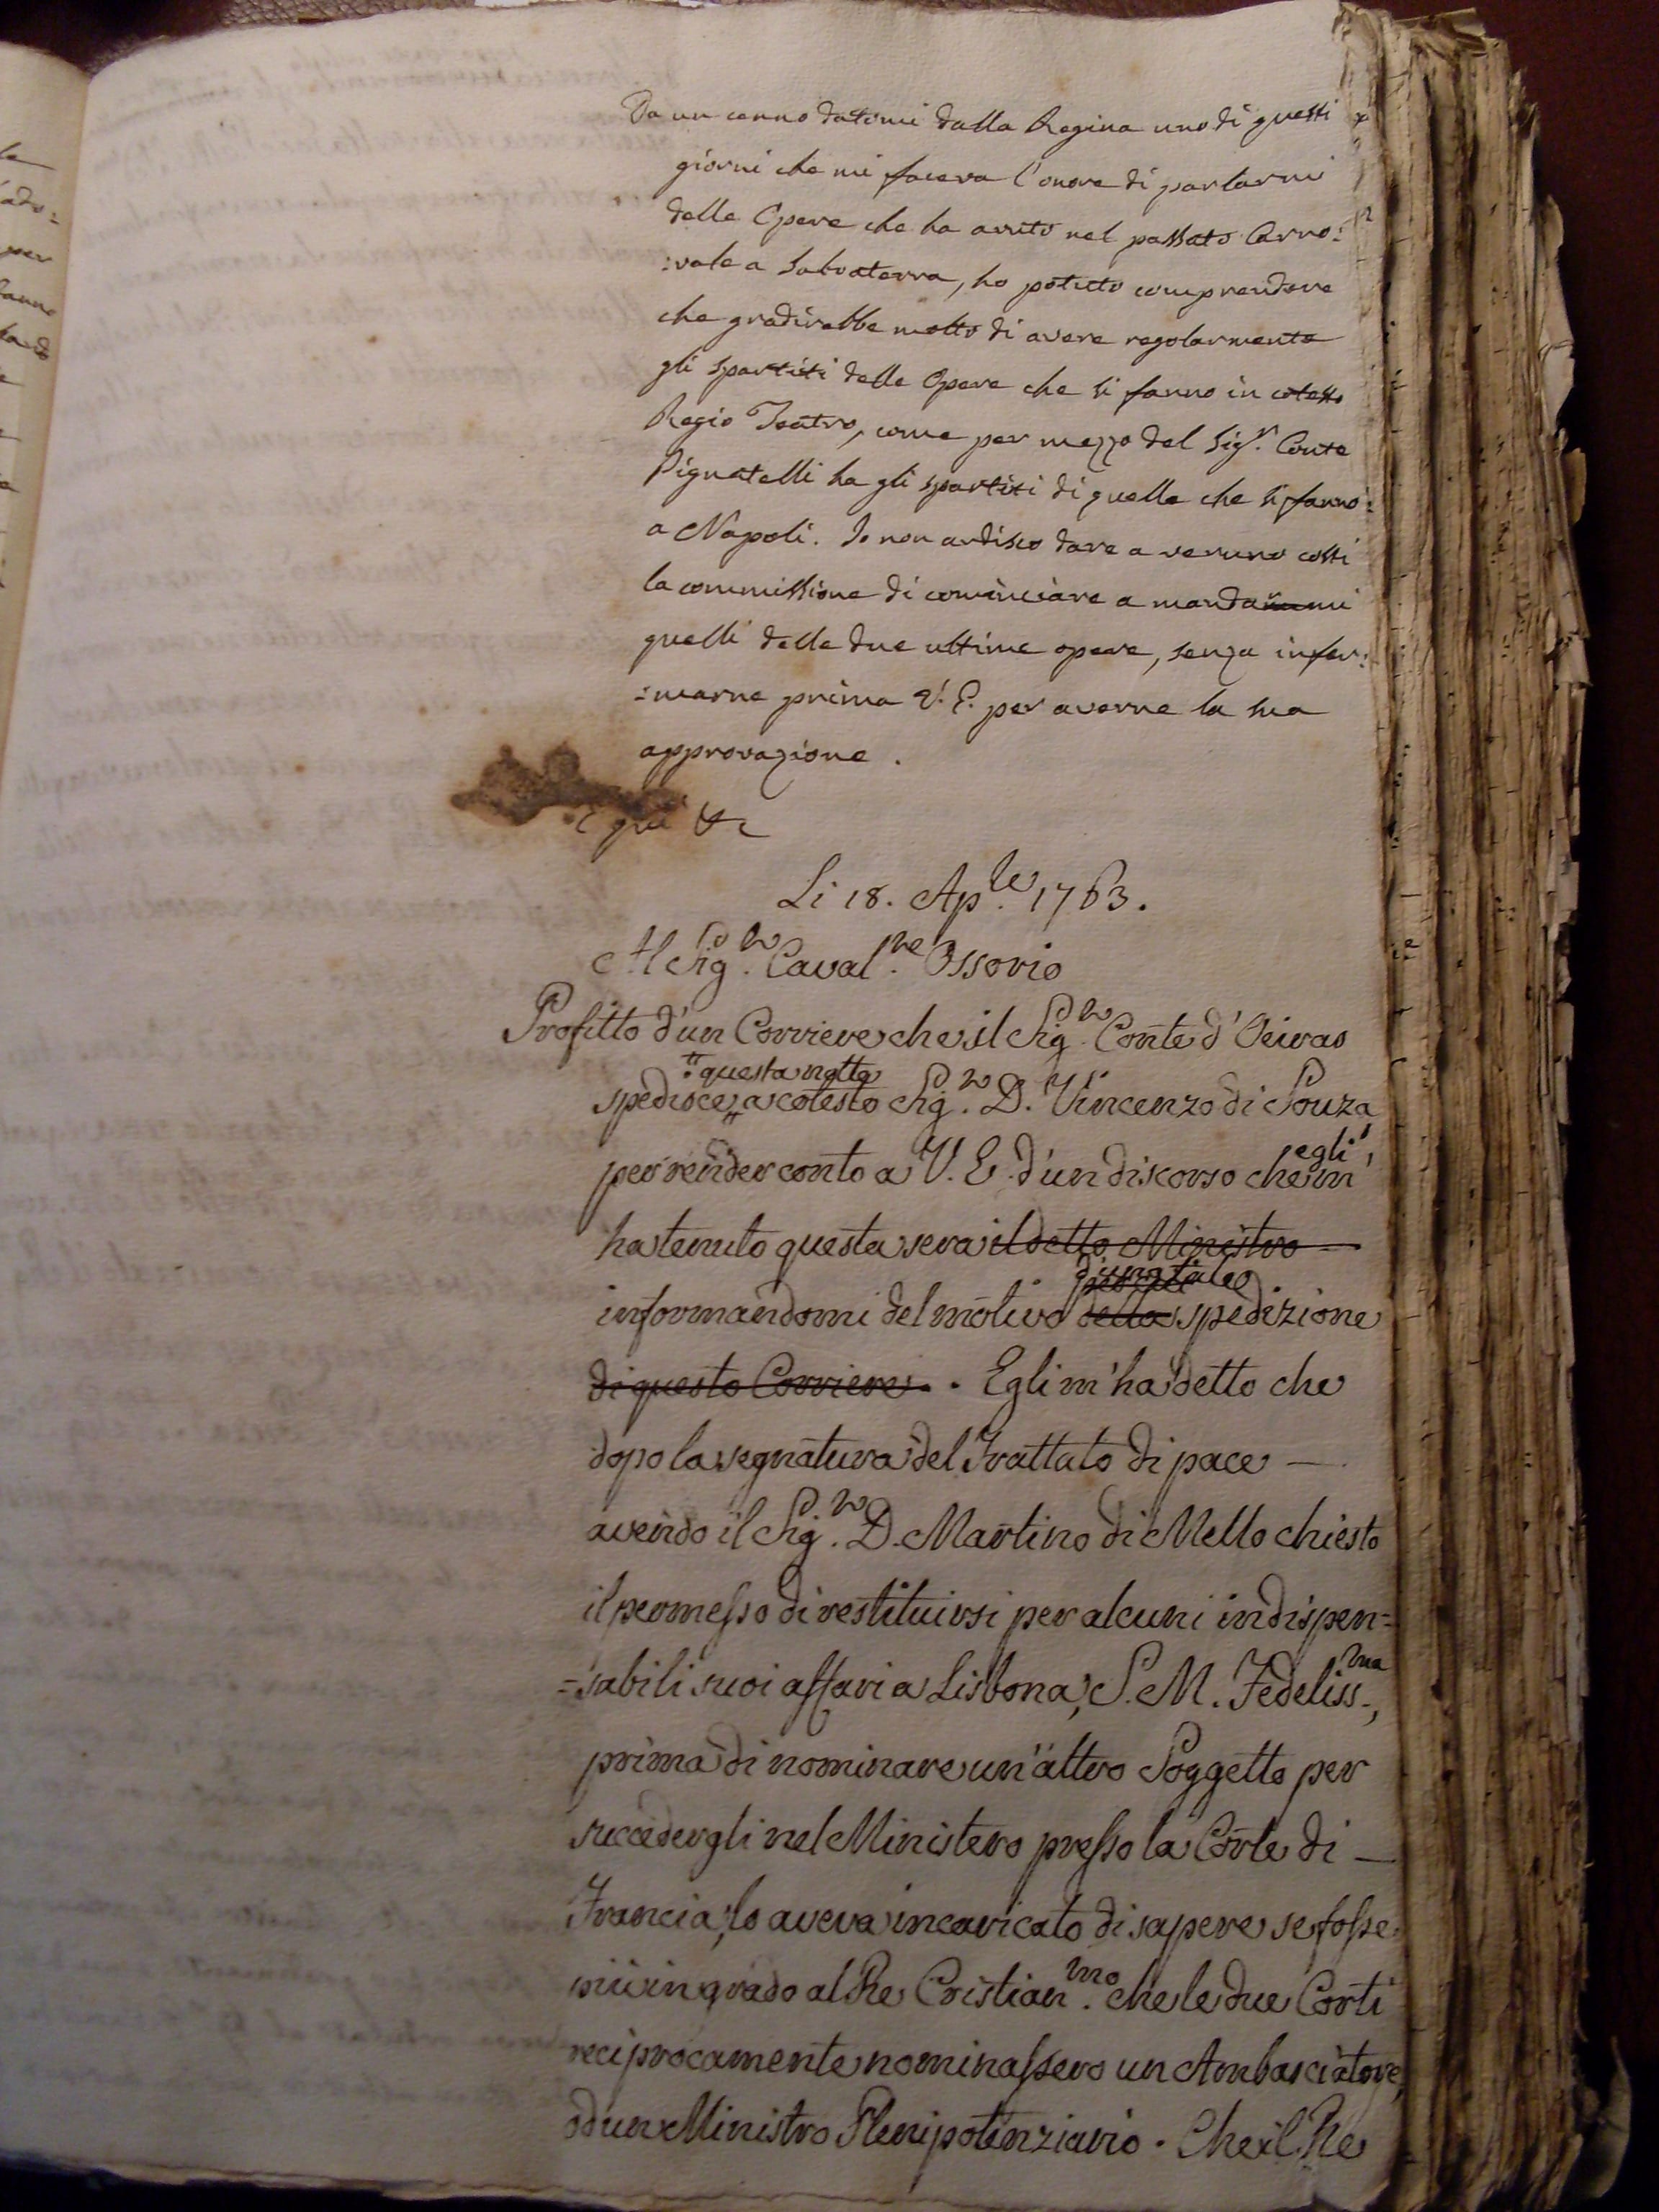 Da un cenno datimi dalla Regina uno di questi
giorni che mi faceva l'onore di parlarmi
delle Opere che ha avuto nel passato Carno:
:vale a Salvaterra, ho potuto comprendere
che gradirebbe molto di avere regolarmente
gli spartiti delle Opere che si fanno in cotesto
Regio Teatro, come per mezzo del Sig.r Conte
Pignatelli ha gli spartiti di quelle che si fanno
a Napoli. Io non ardisco dare a veruno costi
la commissione di cominciare a mandarmi
quelli delle due ultime opere, senza infor:
:marne prima V. E. per averne la sua
approvazione.
E qui &c
Li 18. Ap.le 1763.
Al Sig.r Caval.re Ossorio
Profitto d'un Corriere che il Sig.r Conte d'Oeiras
questa notte
spedisce a cotesto Sig.r D. Vincenzo di Souza
egli
per render conto a V. E. d'un discorso che m'
ha tenuto questa sera il detto Ministro
d'una tale
informandomi del motivo della spedizione
di questo Corriere. Egli m'ha detto che
dopo la segnatura del Trattato di pace
avendo il Sig.r D. Martino di Mello chiesto
il permesso di restituirsi per alcuni indispen=
=sabili suoi affari a Lisbona, S. M. Fedeliss.ma,
prima di nominare un'altro Soggetto per
succedergli nel Ministero presso la Corte di
Francia, lo aveva incaricato di sapere se fosse
più in grado al Re Cristian.mo che le due Corti
reciprocamente nominassero un Ambasciatore,
od un Ministro Plenipotenziario. Che il Re